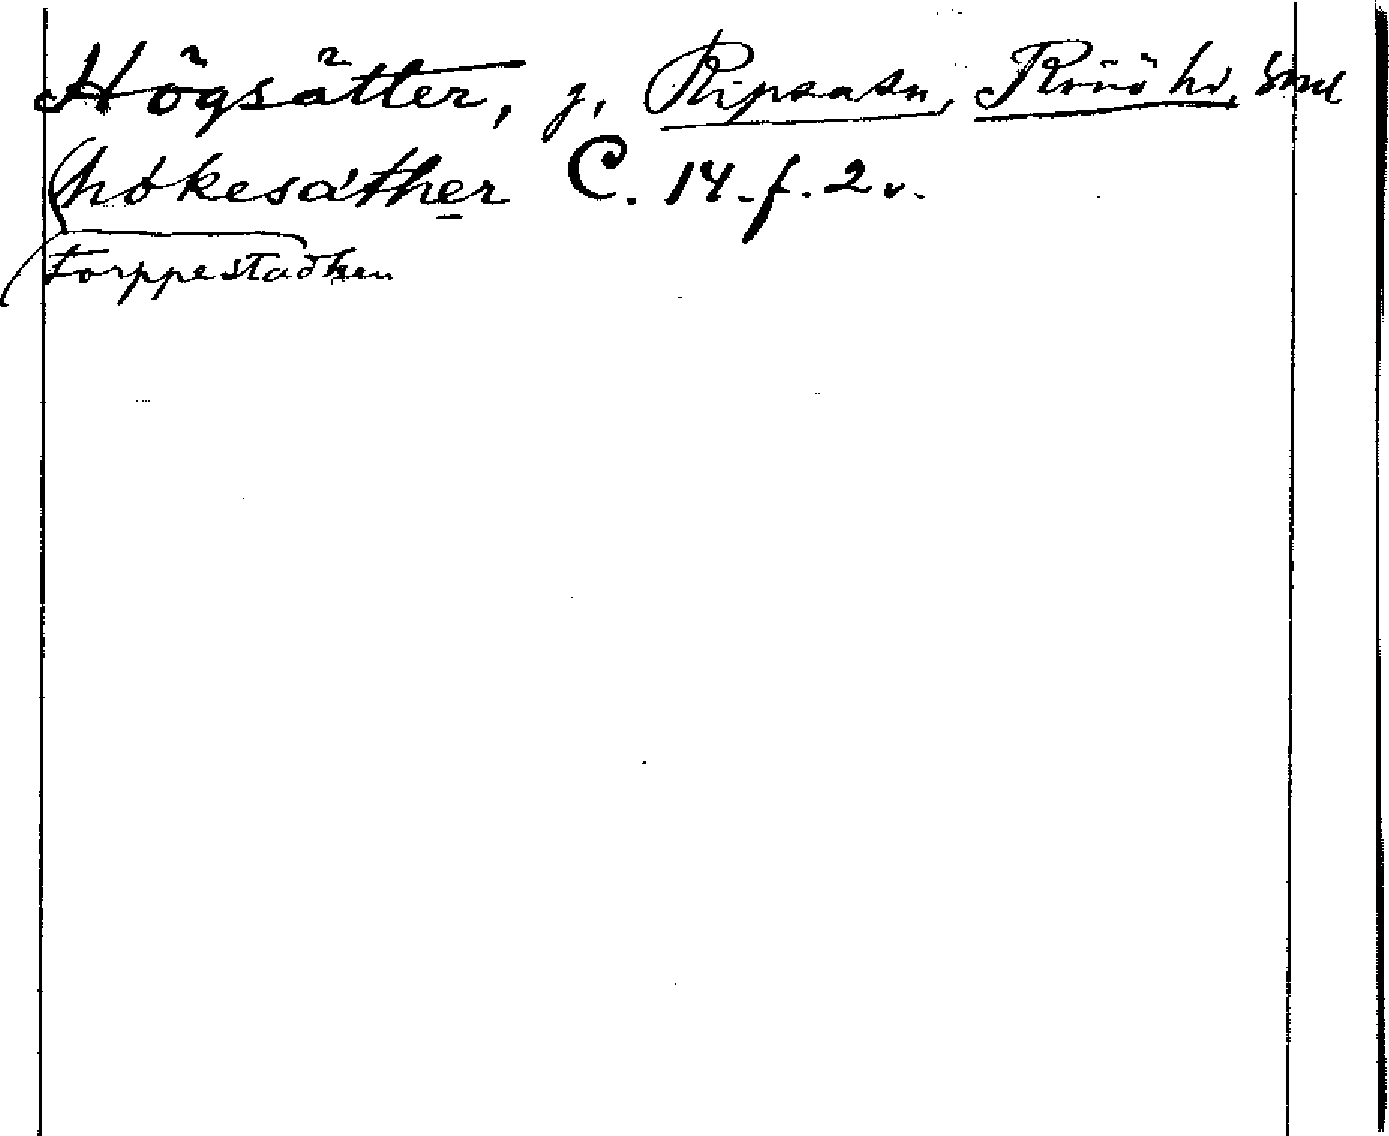 Högsätter, g, Ripsasn, Rönö hd, Sml
hókesáther C. 14. f. 2 v.
torppestadhen